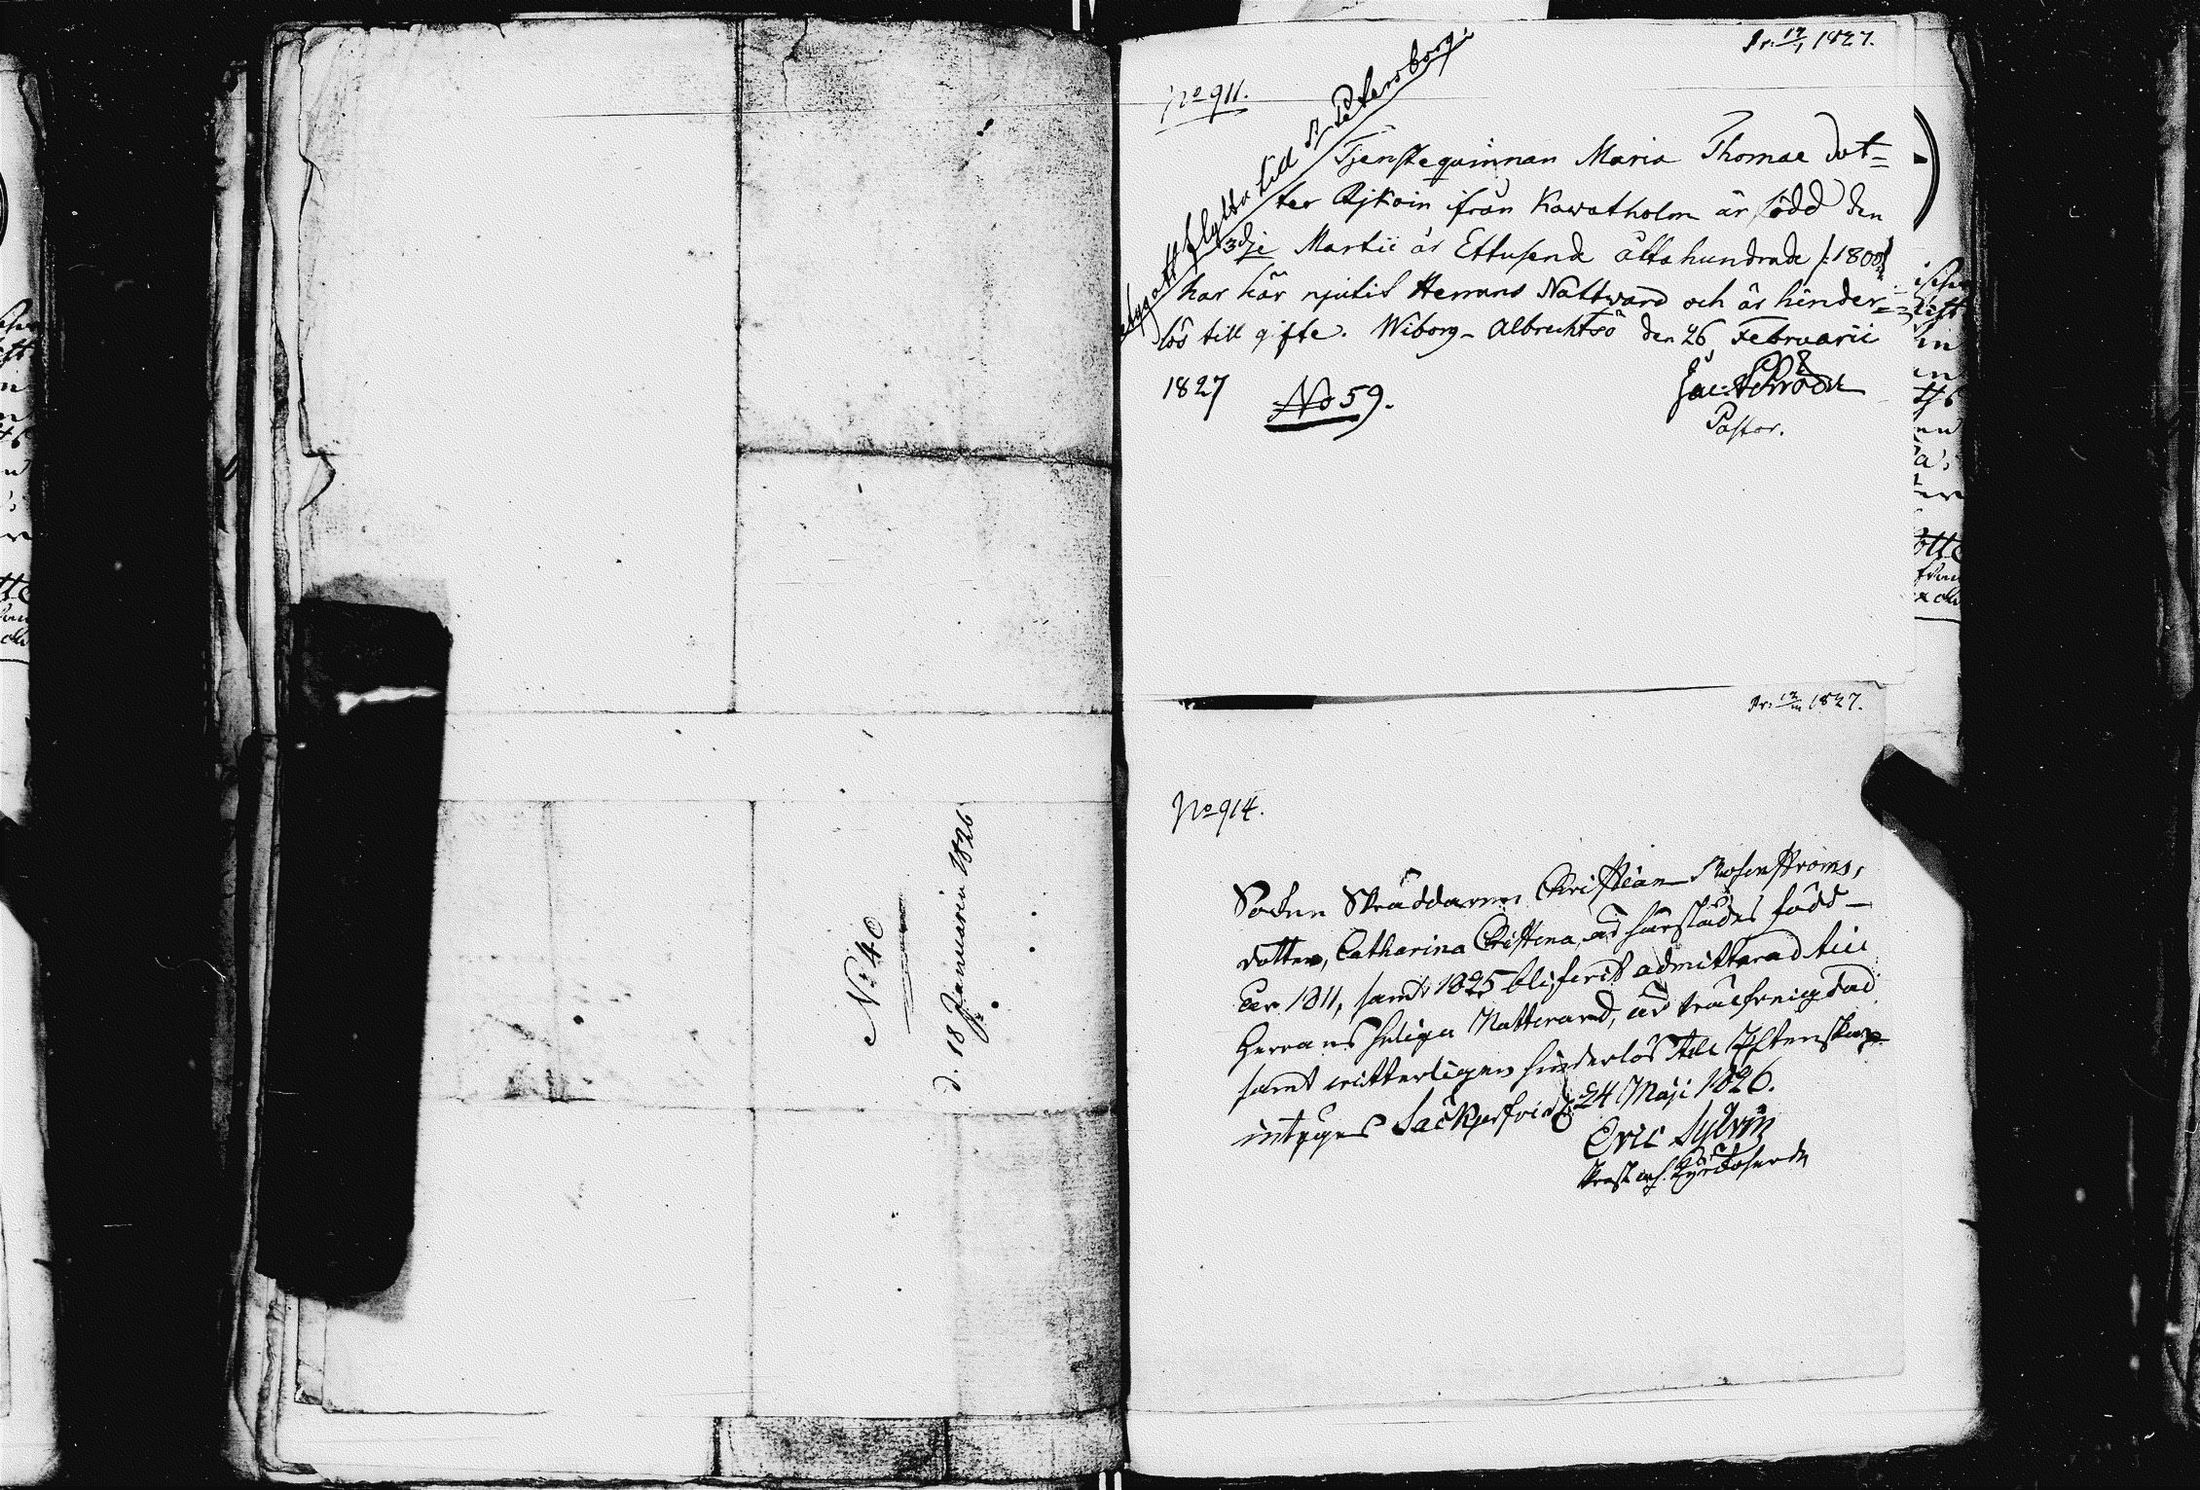 N: 40
d. 18 Januarii 1826
Pr. 12/1 1827.
No 911.
flytta till St Petersborg
Tjenstequinnan Maria Thomae Dot=
ter Rjkoin ifrån Kawatholm är född den
3dje Martii år Ettusend åttahundrade /:1800:/
har här njutit Herrans Nattward och är hinder=
lös till gifte. Wiborg - Albrechtsö den 26 Februarii
1827 No 59.
Jac: Schröder
Pastor.
1827.
No 914.
Socken Skräddaren Christian Rosenströms,
dotter, Catharina Christina, är härstädes född
år 1811, samt 1825 blifvit admitterad till
Herrans heliga Nattvard, är välfreigdad
samt vitterligen hinderlös till Ägtenskap
intygas Säckjerfvi d 24 Maji 1826.
Eric Sylvin
Prost och Kyrckoherde